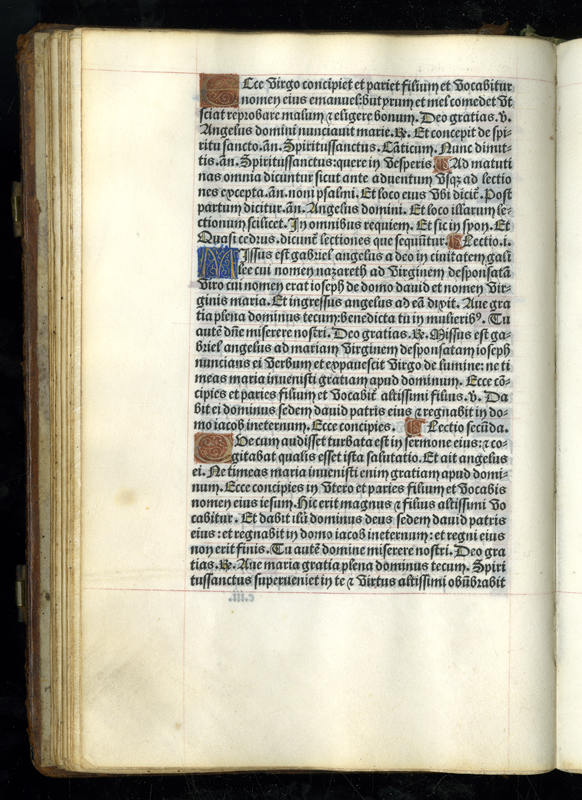 Ecce virgo concipiet et pariet filium et vocabitur
nomen eius emanuel: butyrum et mel comedet vt
sciat reprobare malum ⁊ eligere bonum. Deo gratias. v.
Angelus domini nunciauit marie. R̃. Et concepit de spi-
ritu sancto. añ. Spiritussanctus. Cãticum. Nunc dimit-
tis. añ. Spiritussanctus: quere in vesperis. Ad matuti
nas omnia dicuntur sicut ante aduentum vsqz ad lectio
nes excepta. añ. noni psalmi. Et loco eius vbi dicit̃. Post
partum dicitur. añ. Angelus domini. Et loco illarum le-
ctionum scilicet. In omnibus requiem. Et sic in syon. Et
Quasi cedrus. dicunt̃ lectiones que sequũtur. Lectio. i.
Missus est gabriel angelus a deo in ciuitatem gali
lee cui nomen nazareth ad virginem desponsatã
viro cui nomen erat ioseph de domo dauid et nomen vir-
ginis maria. Et ingressus angelus ad eã dixit. Aue gra
tia plena dominus tecum: benedicta tu in mulieribꝰ. Tu
autẽ dñe miserere nostri. Deo gratias. R̃. Missus est ga-
briel angelus ad mariam virginem desponsatam ioseph
nuncians ei verbum et expauescit virgo de lumine: ne ti
meas maria inuenisti gratiam apud dominum. Ecce cõ-
cipies et paries filium et vocabit̃ altissimi filius. v. Da
bit ei dominus sedem dauid patris eius ⁊ regnabit in do-
mo iacob ineternum. Ecce concipies. Lectio secũda.
Que cum audisset turbata est in sermone eius: ⁊ co-
gitabat qualis esset ista salutatio. Et ait angelus
ei. Ne timeas maria inuenisti enim gratiam apud domi-
num. Ecce concipies in vtero et paries filium et vocabis
nomen eius iesum. Hic erit magnus ⁊ filius altissimi vo
cabitur. Et dabit illi dominus deus sedem dauid patris
eius: et regnabit in domo iacob ineternum: et regni eius
non erit finis. Tu autẽ domine miserere nostri. Deo gra
tias. R̃. Aue maria gratia plena dominus tecum. Spiri
tussanctus superueniet in te ⁊ virtus altissimi obũbrabit